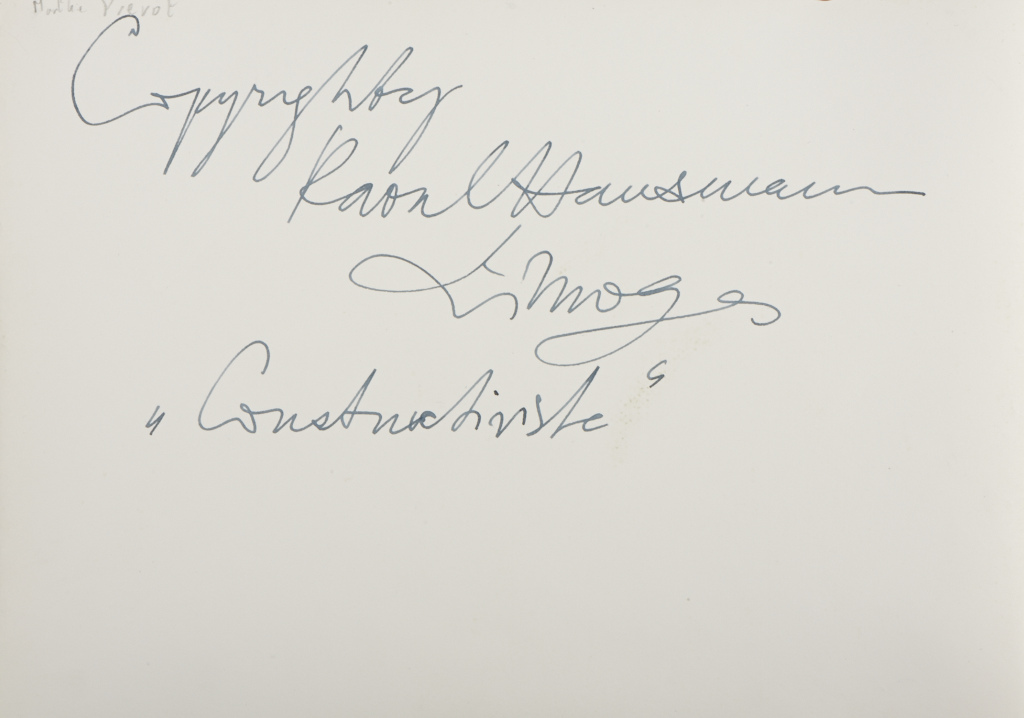 Copyright by
Raoul Hausmann
Limoges
„Constructiviste“